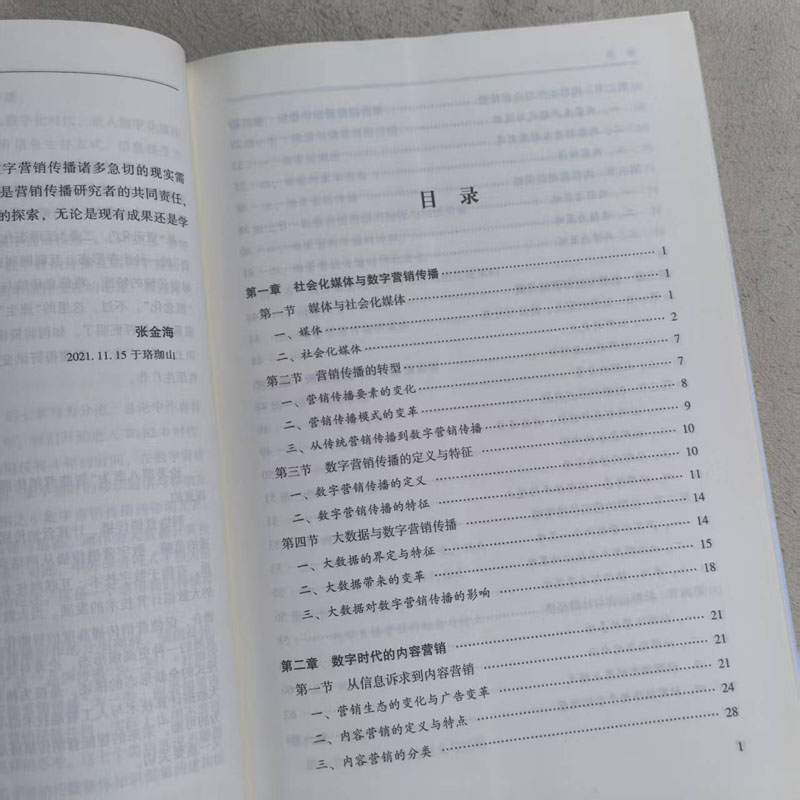 字营销传播诸多急切的现实需
是营销传播研究者的共同责任，
的探索，无论是现有成果还是学
张金海
2021.11.15于珞珈山
目 录
第一章 社会化媒体与数字营销传播 1
第一节 媒体与社会化媒体 1
一、媒体 1
二、社会化媒体 2
第二节 营销传播的转型 7
一、营销传播要素的变化 7
二、营销传播模式的变革 8
三、从传统营销传播到数字营销传播 9
第三节 数字营销传播的定义与特征 10
一、数字营销传播的定义 10
二、数字营销传播的特征 11
第四节 大数据与数字营销传播 14
一、大数据的界定与特征 14
二、大数据带来的变革 15
三、大数据对数字营销传播的影响 18
第二章 数字时代的内容营销 21
第一节 从信息诉求到内容营销 21
一、营销生态的变化与广告变革 21
二、内容营销的定义与特点 24
三、内容营销的分类 28
1